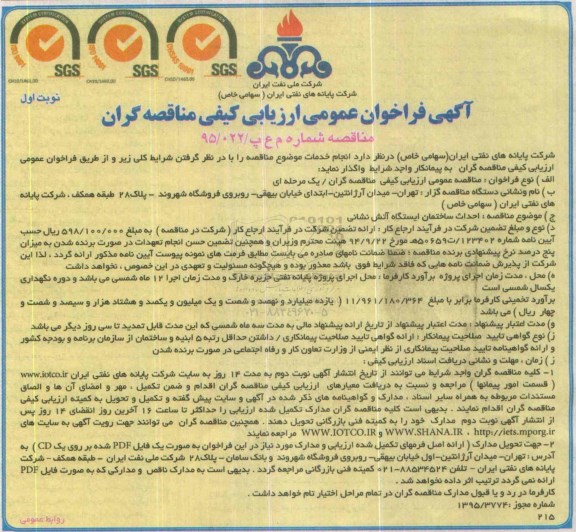 SGS SGS SGS
شرکت ملی نفت ایران
شرکت پایانه های نفتی ایران ( سهامی خاص)
نوبت اول
آگهی فراخوان عمومی ارزیابی کیفی مناقصه گران
مناقصه شماره م ع پ/۹۵/۰۲۲
شرکت پایانه های نفتی ایران(سهامی خاص) درنظر دارد انجام خدمات موضوع مناقصه را با در نظر گرفتن شرایط کلی زیر و از طریق فراخوان عمومی
ارزیابی کیفی مناقصه گران به پیمانکار واجد شرایط واگذار نماید:
الف ) نوع فراخوان : مناقصه عمومی ارزیابی کیفی مناقصه گران / یک مرحله ای
ب ) نام ونشانی دستگاه مناقصه گزار : تهران- میدان آرژانتین-ابتدای خیابان بیهقی- روبروی فروشگاه شهروند - پلاک۲۸ طبقه همکف ، شرکت پایانه
های نفتی ایران ( سهامی خاص )
ج ) موضوع مناقصه : احداث ساختمان ایستگاه آتش نشانی
د) نوع و مبلغ تضمین شرکت در فرآیند ارجاع کار : ارائه تضمین شرکت در فرآیند ارجاع کار ( شرکت در مناقصه ) به مبلغ ۵۹۸/۱۰۰/۰۰۰ ریال حسب
آیین نامه شماره ۱۲۳۴۰۲/ت۵۰۶۵۹هـ مورخ ۹۴/۹/۲۲ هیئت محترم وزیران و همچنین تضمین حسن انجام تعهدات در صورت برنده شدن به میزان
پنج درصد نرخ پیشنهادی برنده مناقصه : ضمناً ضمانت نامهای صادره می بایست مطابق فرمت های نمونه پیوست آیین نامه مذکور ارائه گردد ، لذا این
شرکت از پذیرش ضمانت نامه هایی که فاقد شرایط فوق باشد معذور بوده و هیچگونه مسئولیت و تعهدی در این خصوص ، نخواهد داشت
ه) محل ، مدت زمان اجرای پروژه برآورد کارفرما : محل اجرای پروژه پایانه نفتی جزیره خارک و مدت زمان اجرا ۱۲ ماه شمسی می باشد و دوره نگهداری
یکسال شمسی است
برآورد تخمینی کارفرما برابر با مبلغ ۱۱/۹۶۱/۱۸۰/۳۶۴ ( یازده میلیارد و نهصد و شصت و یک میلیون و یکصد و هشتاد هزار و سیصد و شصت و
چهار ریال ) می باشد
و) مدت اعتبار پیشنهاد : مدت اعتبار پیشنهاد از تاریخ ارائه پیشنهاد مالی به مدت سه ماه شمسی که این مدت قابل تمدید تا سی روز دیگر می باشد
ز) نوع گواهی تایید صلاحیت پیمانکار : ارائه گواهی تایید صلاحیت پیمانکاری / داشتن حداقل رتبه ۵ ابنیه و ساختمان از سازمان برنامه و بودجه کشور
و ارائه گواهینامه تایید صلاحیت پیمانکاری از نظر ایمنی از وزارت تعاون کار و رفاه اجتماعی در صورت برنده شدن
ژ ) زمان ، مهلت و نشانی دریافت اسناد ارزیابی کیفی :
۱- کلیه مناقصه گران واجد شرایط می توانند از تاریخ انتشار آگهی نوبت دوم به مدت ۱۴ روز به سایت شرکت پایانه های نفتی ایران www.iotco.ir
( قسمت امور پیمانها ) مراجعه و نسبت به دریافت معیارهای ارزیابی کیفی مناقصه گران اقدام و ضمن تکمیل ، مهر و امضای آن ها و الصاق
مستندات مربوطه به همراه سایر اسناد ، مدارک و گواهینامه های ذکر شده در آگهی و سایت پیش گفته و تکمیل و تحویل به کمیته ارزیابی کیفی
مناقصه گران اقدام نمایند . بدیهی است کلیه مناقصه گران مدارک تکمیل شده ارزیابی را حداکثر تا ساعت ۱۶ آخرین روز انقضای ۱۴ روز پس
از انتشار آگهی نوبت دوم مدارک خود را به کمیته فنی بازرگانی تحویل دهند . همچنین مناقصه گران می توانند جهت رویت آگهی به سایت های
http://iets.mporg.ir ، WWW.SHANA.IR و WWW.IOTCO.IR مراجعه نمایند
۲- جهت تحویل مدارک ( ارائه اصل فرمهای تکمیل شده ارزیابی و مدارک مورد نیاز در این فراخوان به صورت یک فایل PDF شده بر روی یک CD ) به
آدرس : تهران- میدان آرژانتین-اول خیابان بیهقی- روبروی فروشگاه شهروند و بانک سامان - پلاک۲۸ شرکت ملی نفت ایران - طبقه همکف - شرکت
پایانه های نفتی ایران - تلفن ۸۸۵۳۴۵۲۴-۰۲۱ کمیته فنی بازرگانی مراجعه گردد . بدیهی است به مدارک ناقص و مدارکی که به صورت فایل PDF
ارائه نمی گردد ترتیب اثر داده نخواهد شد .
کارفرما در رد و یا قبول مدارک مناقصه گران در تمام مراحل اختیار تام خواهد داشت .
شماره مجوز :۱۳۹۵/۳۷۷۴
۲۱۵
روابط عمومی